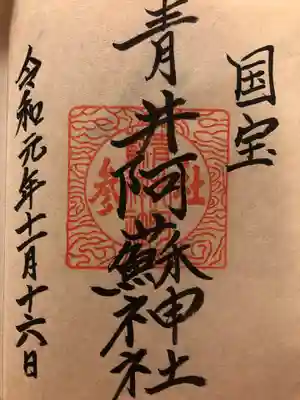 国宝
青井阿蘇神社
令和元年十一月十六日